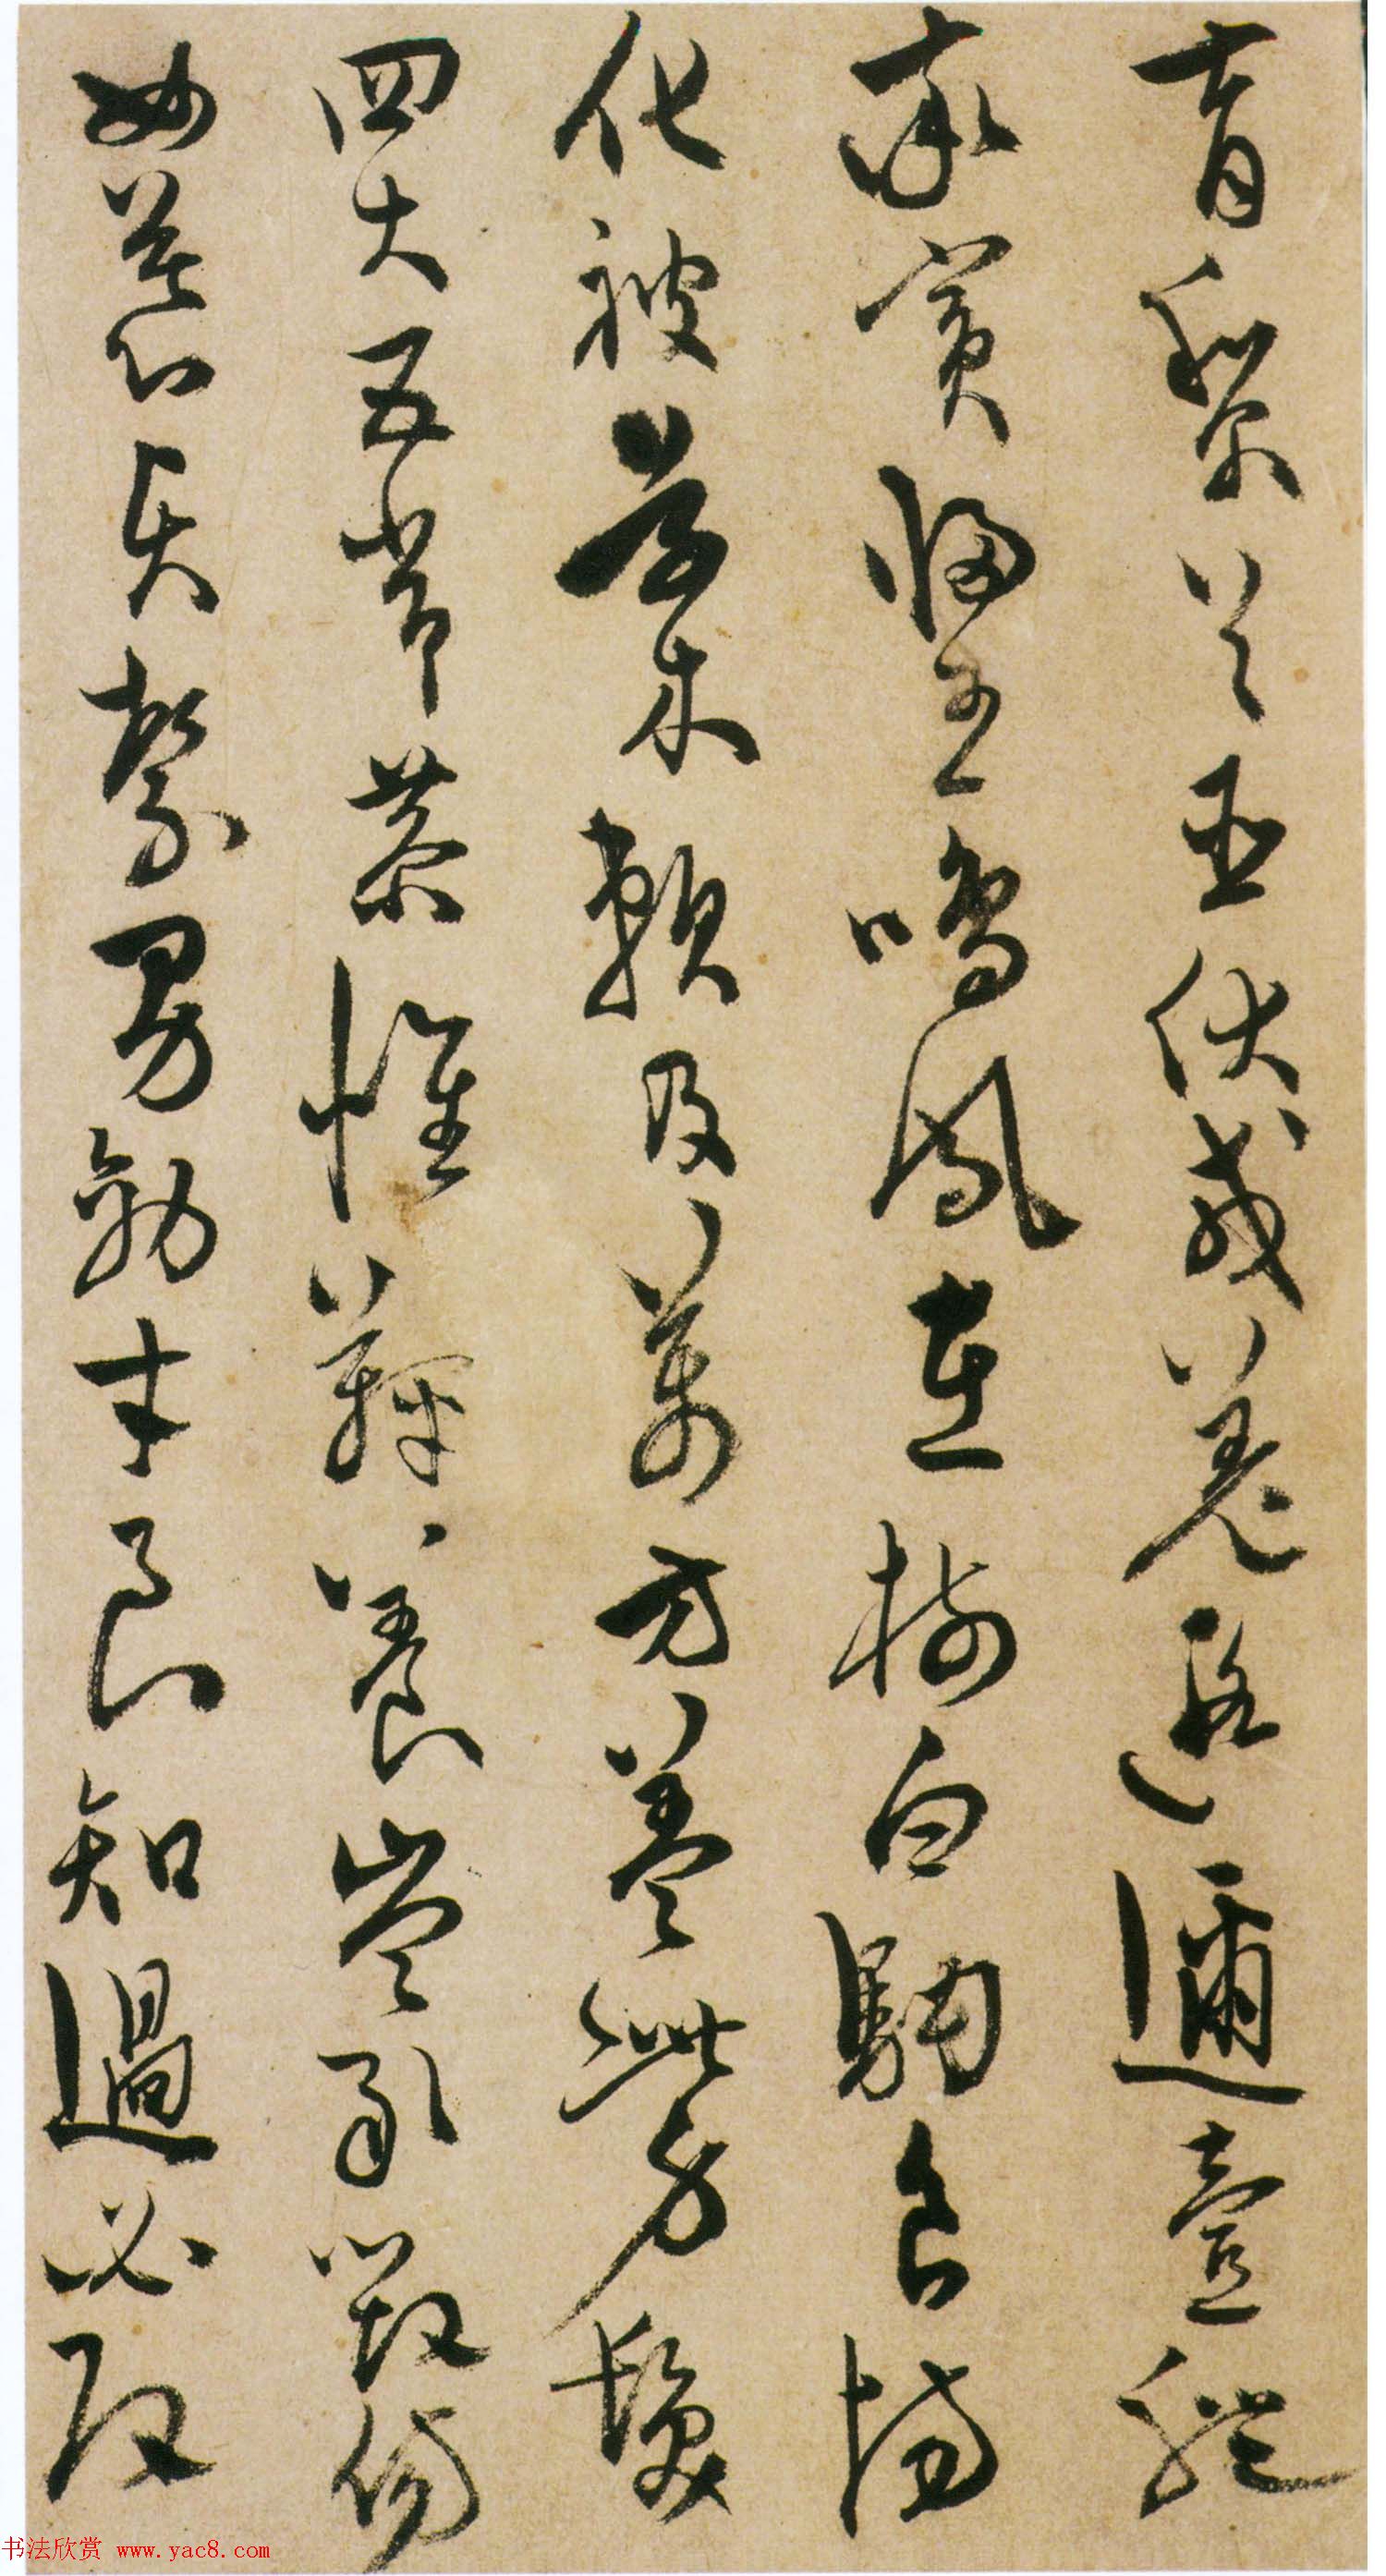 育黎首臣伏戎羌遐邇壹體
率賓歸王鳴鳳在樹白駒食場
化被草木賴及萬方蓋此身髮
四大五常恭惟鞠養豈敢毀傷
女慕貞絜男效才良知過必改
书法欣赏 www.yac8.com